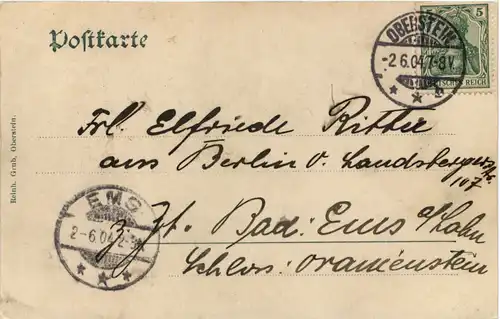 Postkarte
5
DEUTSCHES REICH
OBERSTEIN
-2.6.04.7-8V.
Frl. Elfriede Ritter
aus Berlin o. Landsbergerstr.
107
Zzt. Bad: Ems a/Lahn
Schloss: Oranienstein
EMS
2-6.04.2-3
Reinh. Grub, Oberstein.